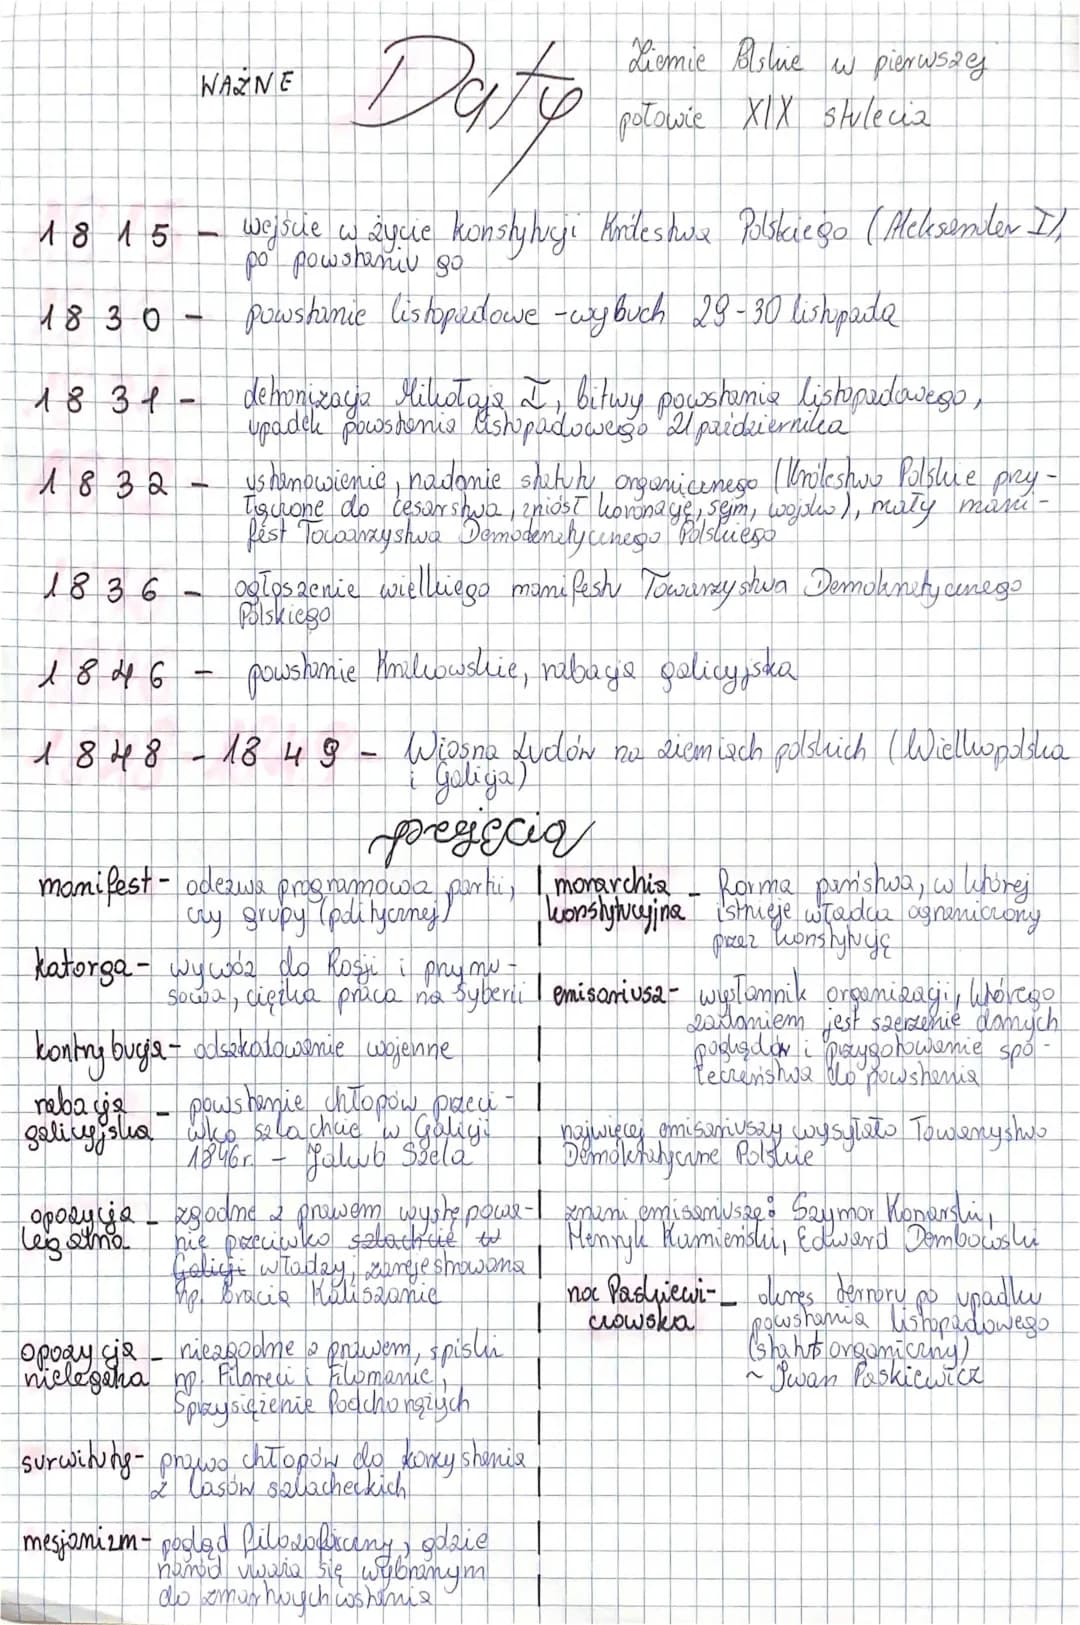 WAŻNE Daty Ziemie Polskie w pierwszej
połowie XIX stulecia
1815 - wejście w życie konstytucji Królestwa Polskiego (Aleksander I),
po powstaniu go
1830 - powstanie listopadowe - wybuch 29-30 listopada
1831 - detronizacja Mikołaja I, bitwy powstania listopadowego,
upadek powstania listopadowego 21 października
1832 - ustanowienie, nadanie statutu organicznego (Królestwo Polskie przy-
łączone do cesarstwa, zniósł koronację, sejm, wojsko), mały mani-
fest Towarzystwa Demokratycznego Polskiego
1836 - ogłoszenie wielkiego manifestu Towarzystwa Demokratycznego
Polskiego
1846 - powstanie Krakowskie, rabacja galicyjska
1848 - 1849 - Wiosna Ludów na ziemiach polskich (Wielkopolska
i Galicja)
pojęcia
manifest - odezwa programowa partii,
czy grupy (politycznej)
katorga - wywóz do Rosji i przymu-
sowa, ciężka praca na Syberii
kontrybucja - odszkodowanie wojenne
rabacja galicyjska - powstanie chłopów przeci-
wko szlachcie w Galicji
1846r. - Jakub Szela
opozycja legalna - zgodne z prawem występowa-
nie przeciwko szlachcie w
Galicji władzy, zarejestrowana
np. bracia Kaliszanie
opozycja nielegalna - niezgodne z prawem, spiski
np. Filareci i Filomanie,
Sprzysiężenie Podchorążych
surwituty - prawo chłopów do korzystania
z lasów szlacheckich
mesjanizm - pogląd filozoficzny, gdzie
naród uważa się wybranym
do zmartwychwstania
monarchia konstytucyjna - Forma państwa, w której
istnieje władca ograniczony
przez konstytucję
emisariusz - wysłannik organizacji, którego
zadaniem jest szerzenie danych
poglądów i przygotowanie spo-
łeczeństwa do powstania
najwięcej emisariuszy wysyłało Towarzystwo
Demokratyczne Polskie
znani emisariusze: Szymon Konarski,
Henryk Kamieński, Edward Dembowski
noc Paskiewi-
czowska - okres terroru po upadku
powstania listopadowego
(statut organiczny)
~ Iwan Paskiewicz